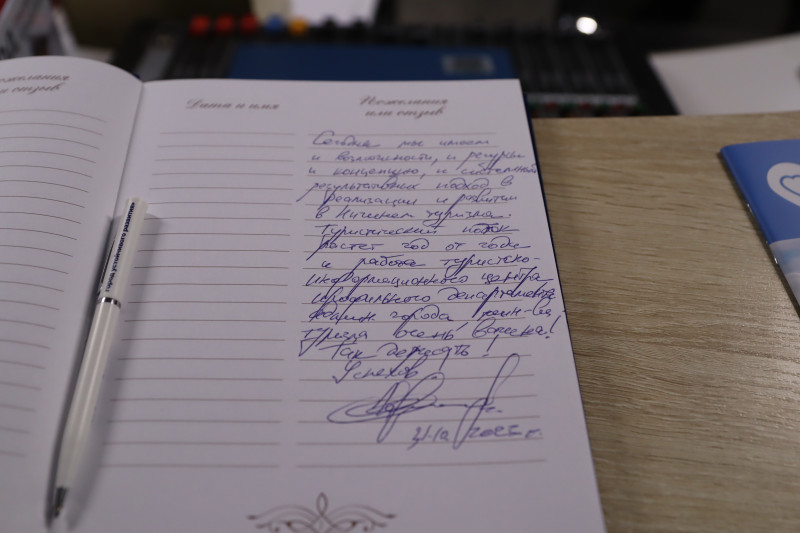 или отзыв
Дата и имя
Пожелания
или отзыв
Сегодня мы имеем
и возможности, и ресурсы
и концепцию, и системный
результативный подход в
реализации и развитии
в Нижнем туризма.
Туристический поток
растет год от года
и работа туристско-
информационного центра
профильного департамента
города
очень важна!
Так держать!
Успехов!
31.10 2025 г.
город устойчивого развития